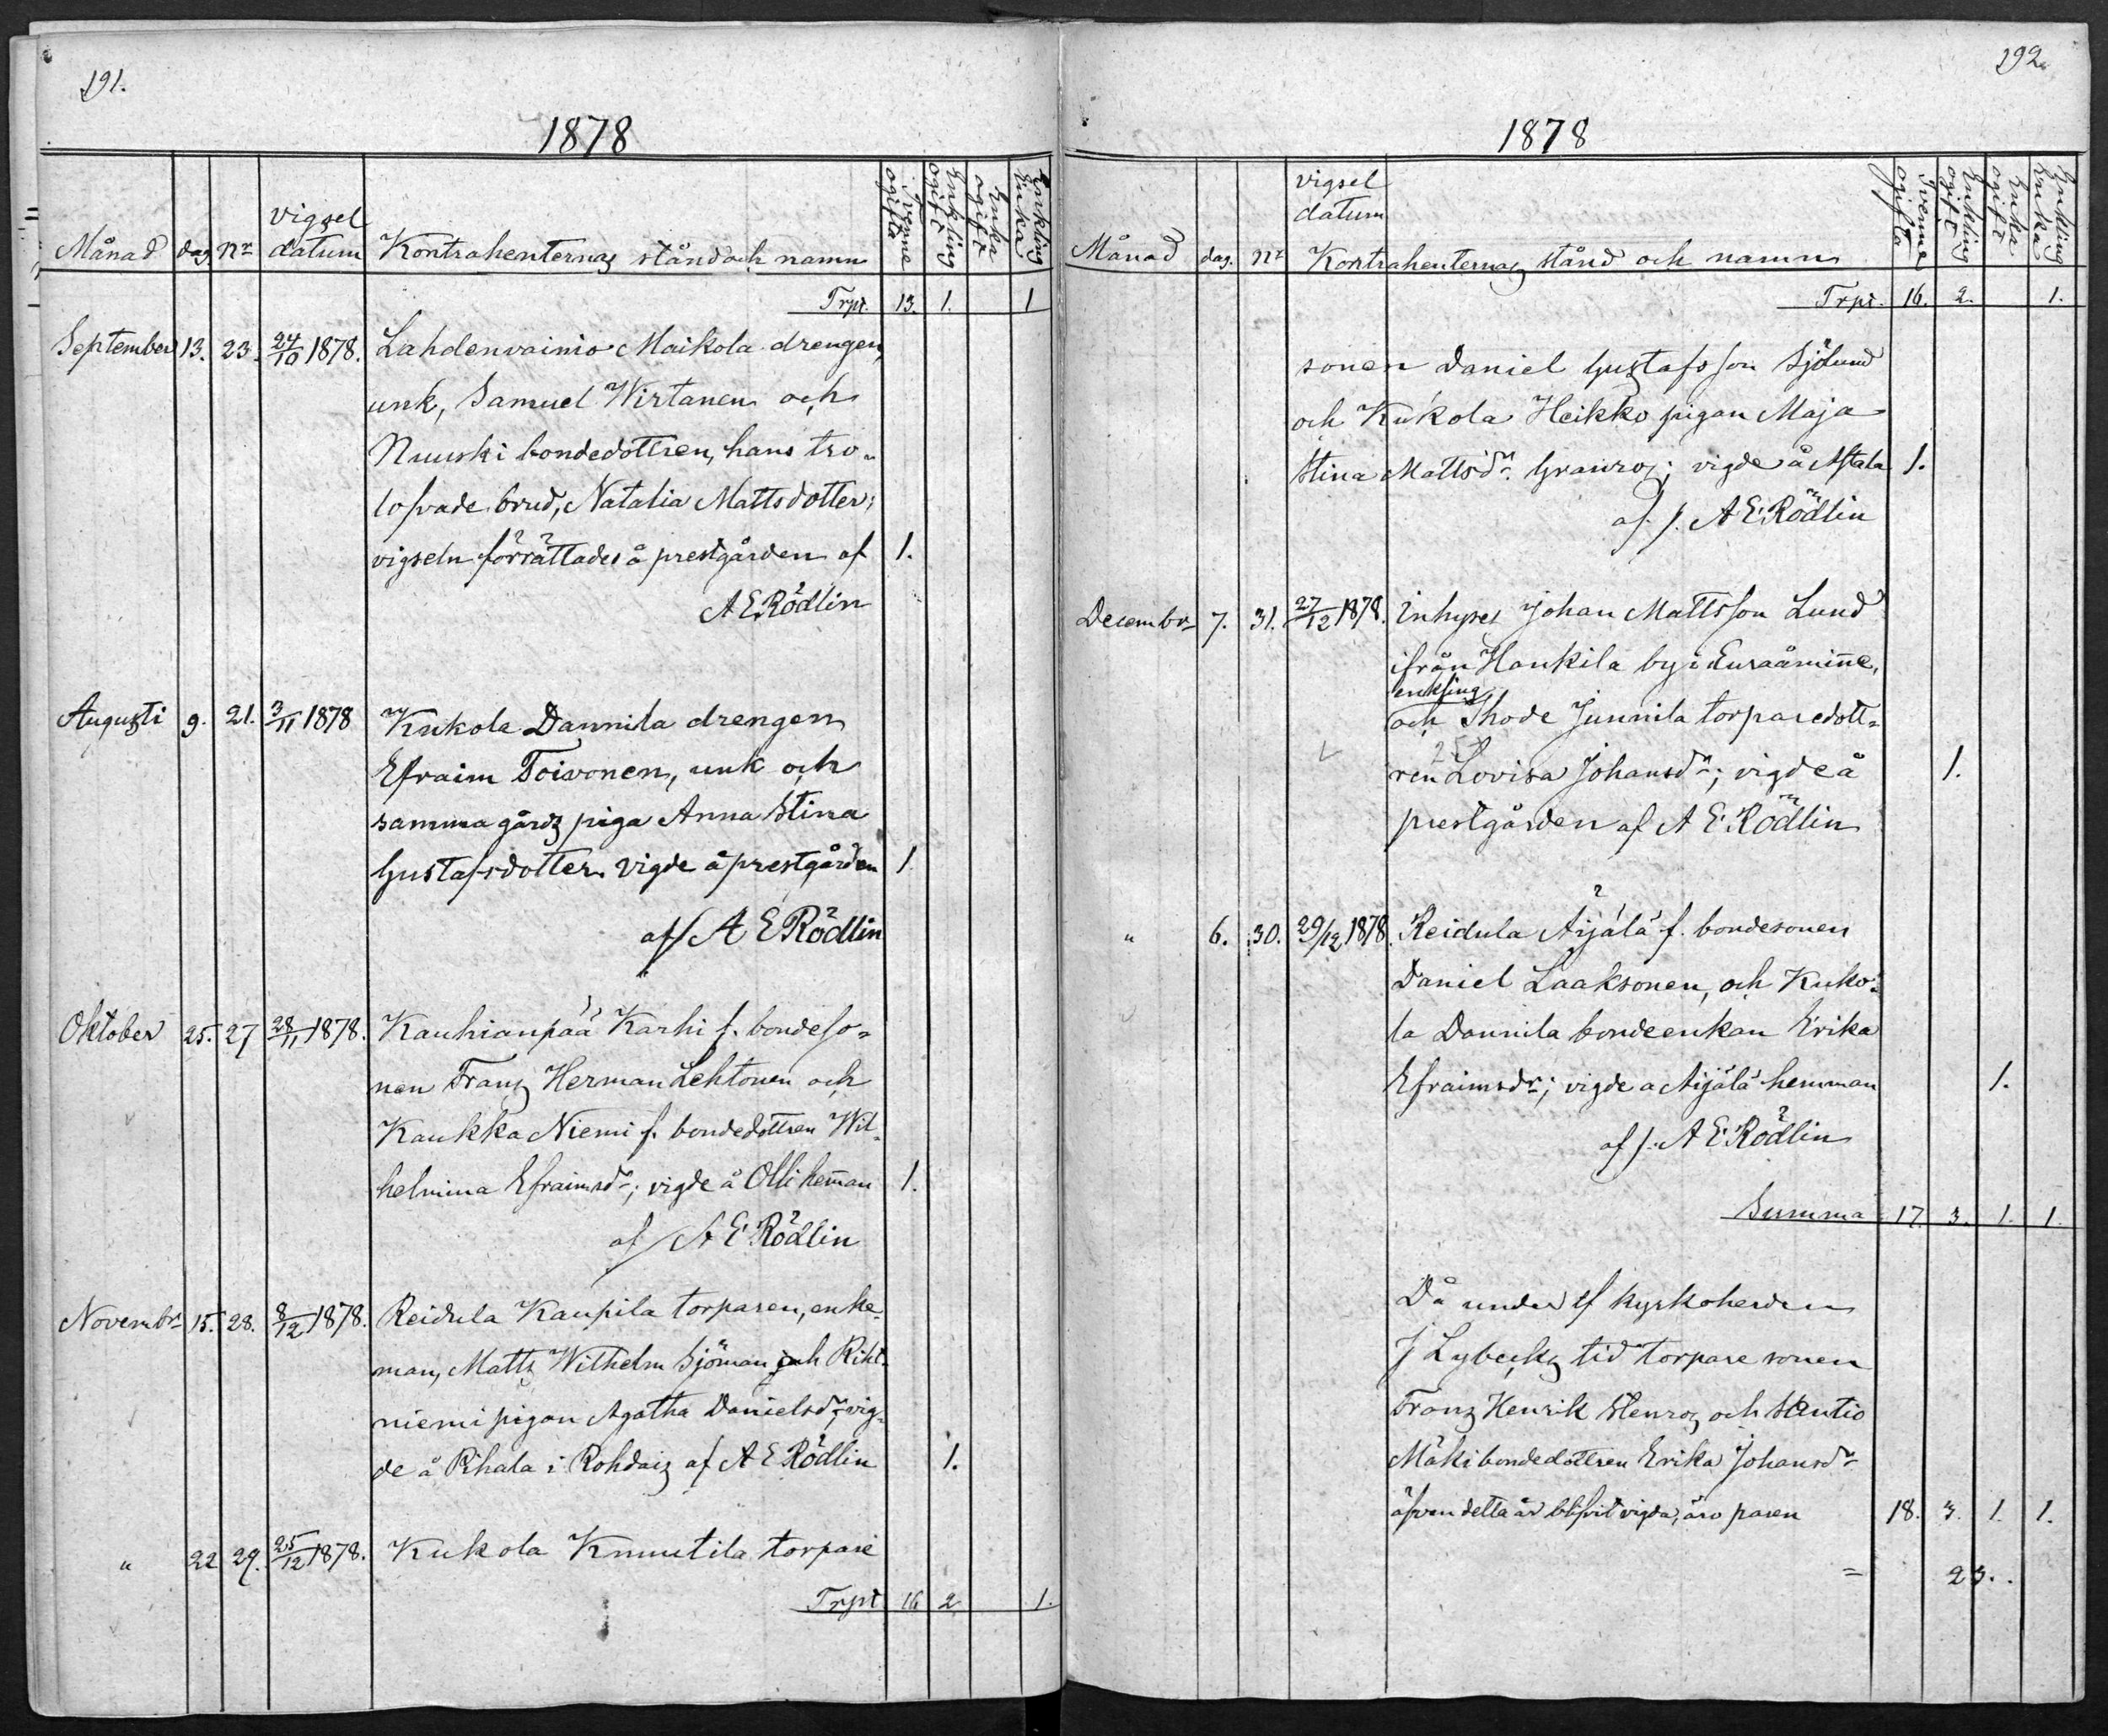 191.
1878
Månad dag. Nr vigsel datum Kontrahenternas stånd och namn Tvenne ogifta Enkling ogift Enka ogift Enkling Enka
Trpt. 13. 1. 1
September 13. 23. 24/10 1878. Lahdenvainio Maikola drengen,
unk, Samuel Wirtanen och
Nuuski bondedottren, hans tro-
lofvade brud, Natalia Mattsdotter;
vigseln förrättades å prestgården af 1.
A E Rödlin
Augusti 9. 21. 3/11 1878 Kukola Dannila drengen
Efraim Toivonen, unk och
samma gårds piga Anna Stina
Gustafsdotter vigde å prestgården 1.
af A E Rödlin
Oktober 25. 27 28/11 1878. Kauhianpää Karhi f. bondeso-
nen Frans Herman Lehtonen och
Kaukka Niemi f. bondedottren Wil-
helmina Efraimsdr; vigde å Olli heman 1.
af A E Rödlin
Novembr 15. 28. 8/12 1878. Reidula Kaupila torparen, enke-
man, Matts Wilhelm Sjöman och Riht-
niemi pigan Agatha Danielsdr vig-
de å Rihala i Rohdais af A E Rödlin 1.
" 22 29. 25/12 1878. Kukola Knuutila torpare
Trpt 16 2 1.
192.
1878
Månad dag. Nr vigsel datum Kontrahenternas stånd och namn Tvenne ogifta Enkling ogift Enka ogift Enkling Enka
Trpt. 16. 2. 1.
sonen Daniel Gustafsson Sjölund
och Kukola Heikko pigan Maja
Stina Mattsdr Granros; vigde å 1.
af A E Rödlin
Decembr 7. 31. 27/12 1878. Inhyses Johan Mattsson Lund
ifrån Hankila by i Euraåmine,
enkling
och Thode Junnila torparedott-
ren Lovisa Johansdr; vigde å 1.
prestgården af A E Rödlin
" 6. 30. 29/12 1878. Reidula Äijälä f. bondesonen
Daniel Laaksonen, och Kuko-
la Dannila bondeenkan Erika
Efraimsdr; vigde a Äijälä hemman 1.
af A E Rödlin
Summa 17. 3. 1. 1.
Då under kyrkoherden
J Lybecks tid torpare sonen
Frans Henrik Stenros och Santio
Mäki bondedottren Erika Johansdr
äfven detta år blifvit vigda, äro paren 18. 3. 1. 1.
= 23.